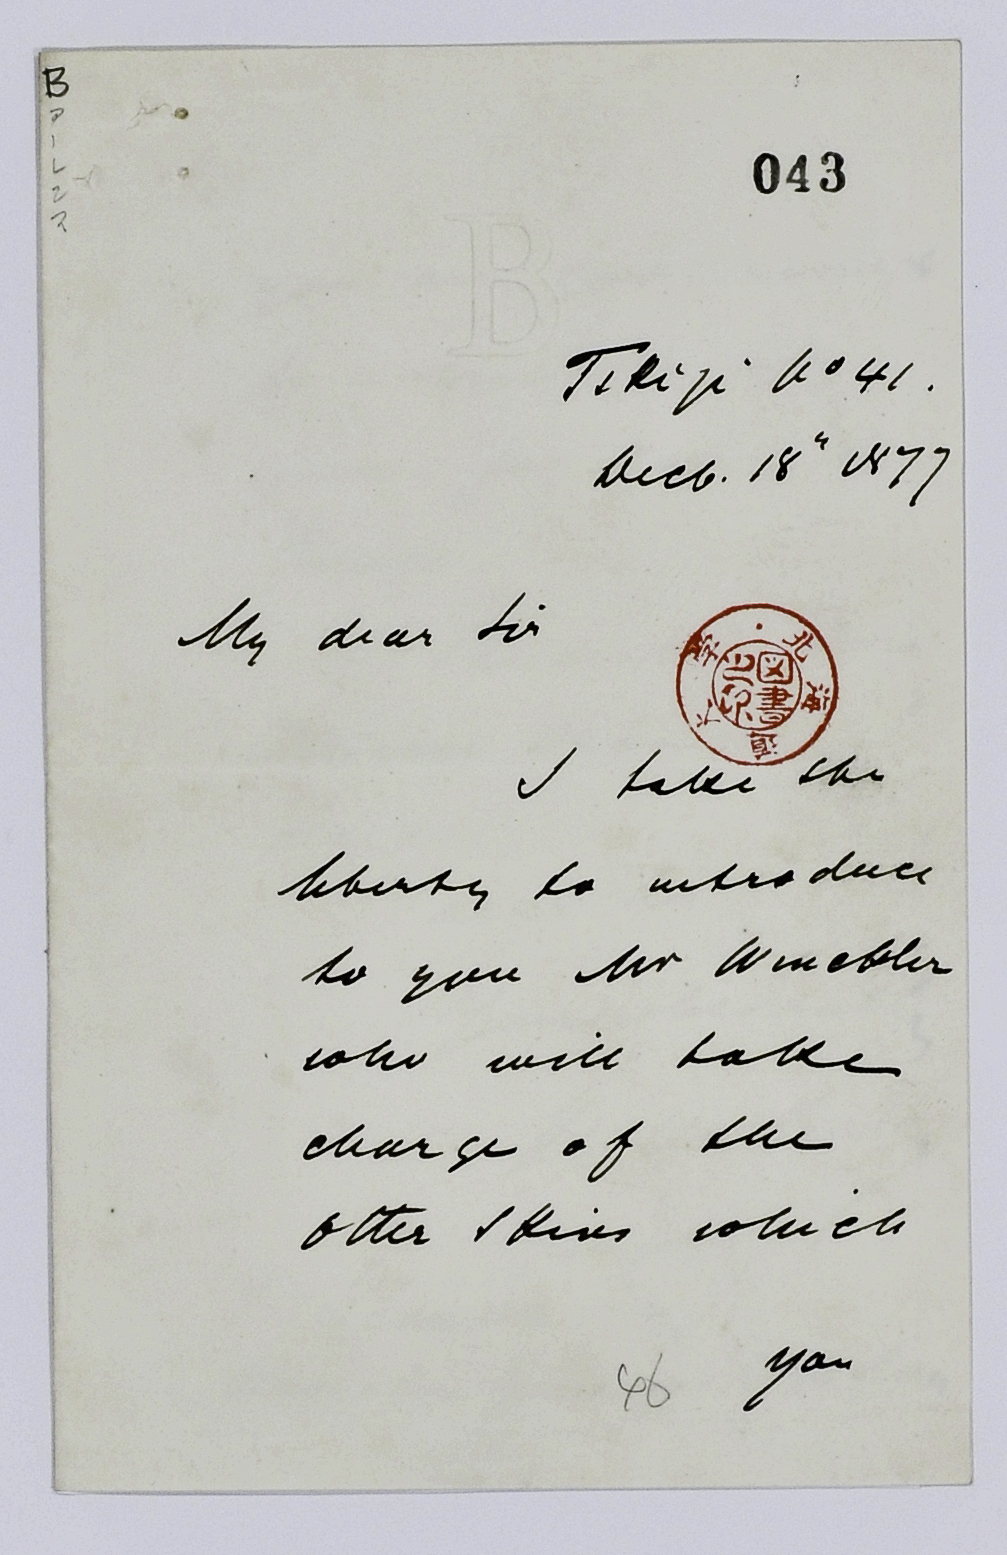 B
043
B
Tskiji No 41.
Decb. 18th 1877
My dear Sir
北海道大學
図書之印
I take the
liberty to introduce
to you Mr Winckler
who will take
charge of the
Otter Skins which
you
46